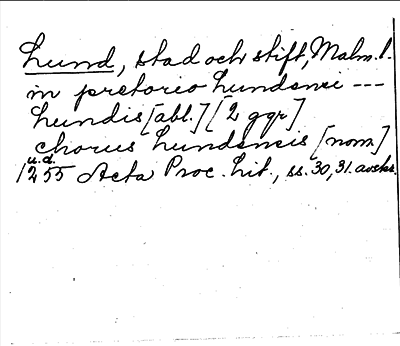 Lund, stad och stift, Malm. l.
in pretorio Lundensi ---
Lundis [abl.] [2 ggr]
chorus Lundensis [nom.]
u.d.
1255 Acta Proc. Lit., ss. 30, 31. avskr.